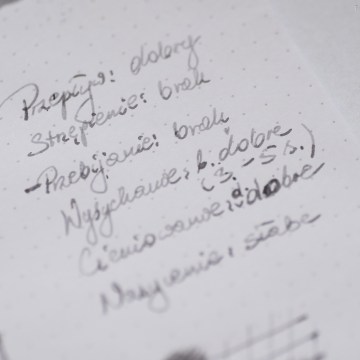 Przepływ: dobry
Strzępienie: brak
- Przebijanie: brak
Wysychanie: b. dobre
(3-5 s.)
Cieniowanie: dobre
Nasycenie: słabe